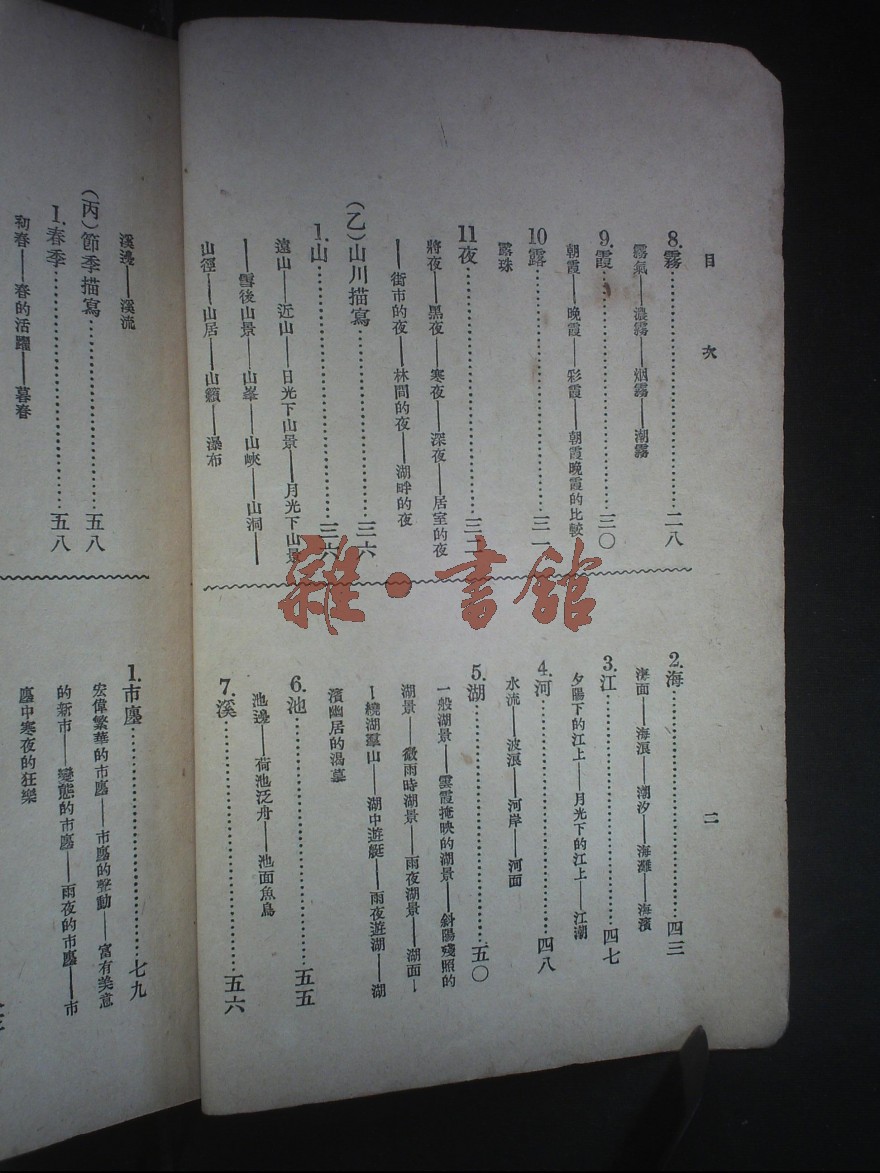 目次
二
8.霧………二八
霧氣——濃霧——烟霧——潮霧
9.霞………三〇
朝霞——晚霞——彩霞——朝霞晚霞的比較
10露………三一
露珠
11夜………三二
將夜——黑夜——寒夜——深夜——居室的夜
——街市的夜——林間的夜——湖畔的夜
(乙)山川描寫………三六
1.山………三六
遠山——近山——日光下山景——月光下山景
——雪後山景——山峯——山峽——山洞——
山徑——山居——山籟——瀑布
2.海………四三
海面——海浪——潮汐——海灘——海濱
3.江………四七
夕陽下的江上——月光下的江上——江潮
4.河………四八
水流——波浪——河岸——河面
5.湖………五〇
一般湖景——雲霞掩映的湖景——斜陽殘照的
湖景——微雨時湖景——雨夜湖景——湖面—
—繞湖羣山——湖中遊艇——雨夜遊湖——湖
濱幽居的渴慕
6.池………五五
池邊——荷池泛舟——池面魚鳥
7.溪………五六
溪邊——溪流
(丙)節季描寫………五八
1.春季………五八
初春——春的活躍——暮春
1.市廛………七九
宏偉繁華的市廛——市廛的聲動——富有美意
的新市——變態的市廛——雨夜的市廛——市
廛中寒夜的狂樂
雜·書館